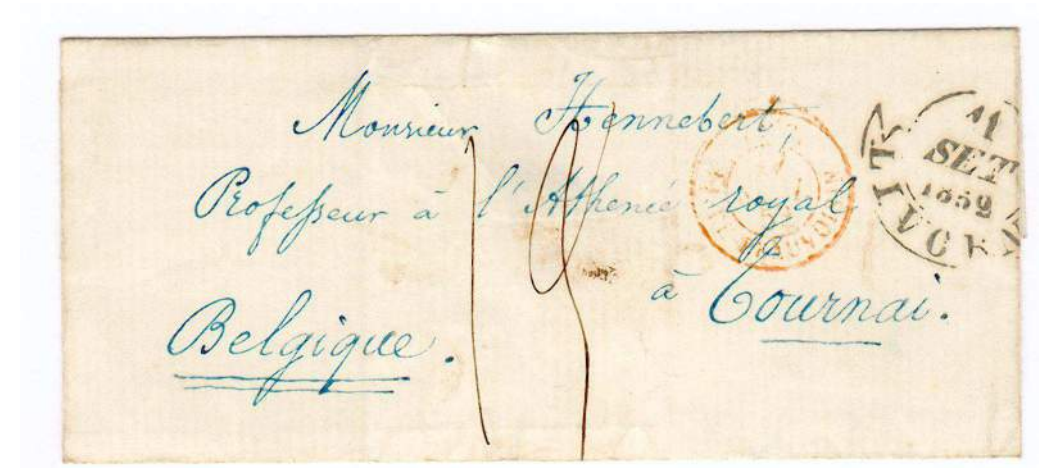 Monsieur Hennebert,
Professeur à l'Athénée royal
à Tournai.
Belgique.
19
11
SET
1852
LIVORNO